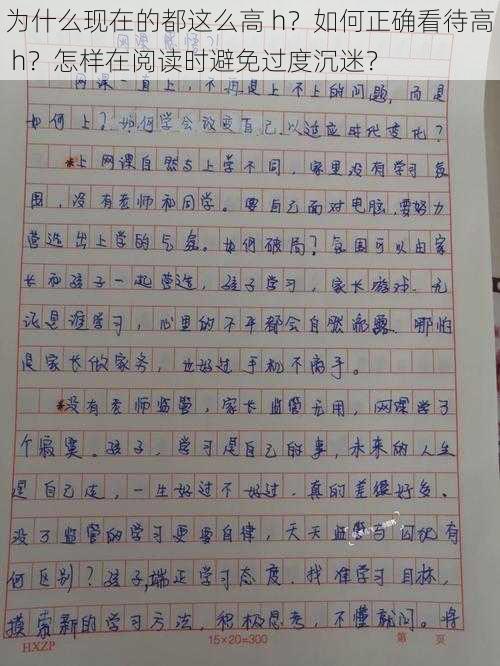 为什么现在的都这么高 h？如何正确看待高
h？怎样在阅读时避免过度沉迷？
网课感悟？
网课一直上，不再是上不上的问题，而是
如何上？如何学会改变自己以适应时代变化？
上网课自然与上学不同，家里没有学习氛
围，没有老师和同学。要自己面对电脑，要努力
营造出上学的气氛。如何破局？氛围可以由家
长和孩子一起营造，孩子学习，家长游戏.无
论是谁学习，心里的不平都会自然流露.哪怕
是家长做家务，也好过手机不离手。
没有老师监管，家长监管无用，网课学了
个寂寞。孩子，学习是自己的事，未来的人生
是自己走，一生好过不好过.真的差很好多。
没了监管的学习更要自律，天天监管与囚犯有
何区别？孩子，端正学习态度.找准学习目标，
摸索新的学习方法，积极思考，不懂就问。将
HXZP
15×20=300
第 页